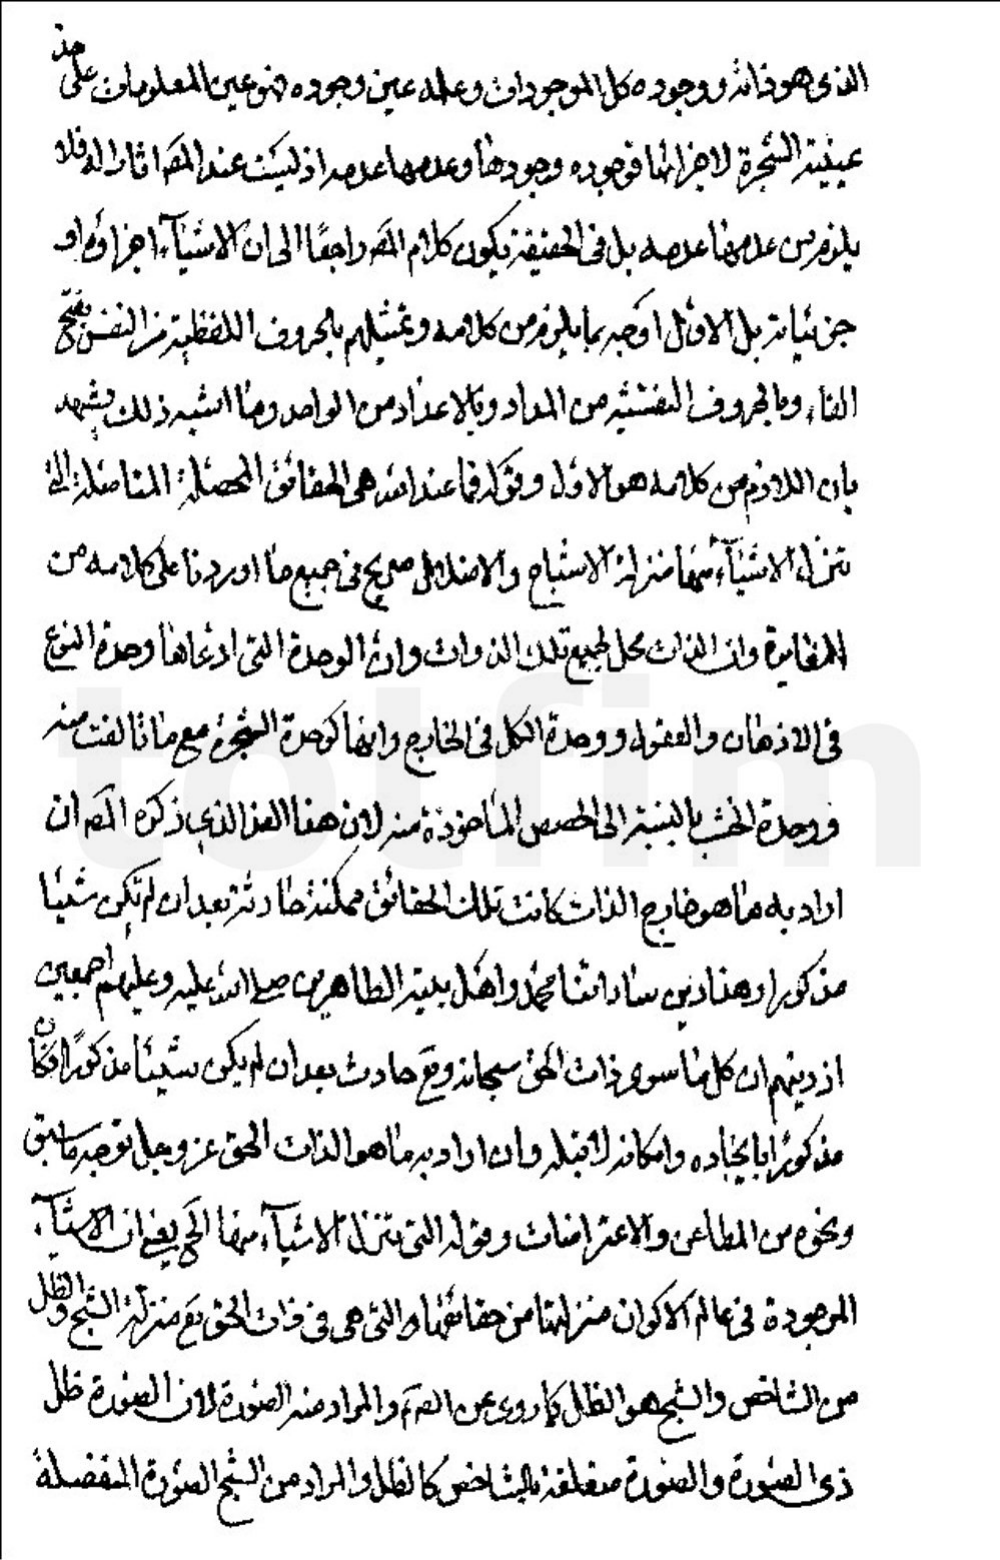 الذى هو ذاته ووجوده كل الموجودات وعلمه عين وجوده فهو عين المعلومات على حد
عينية الشجرة لاجزائها فوجوده وجودها وعدمها عدمه اذ ليست عند المص اثارا له فلا
يلزم من عدمها عدمه بل فى الحقيقة يكون كلام المص راجعًا الى ان الاشيآء اجزاؤه او
جزئياته بل الاول اوجه بما يلزم من كلامه وتمثيلهم بالحروف اللفظية من النفس بفتح
الفاء وبالحروف النقشية من المداد وبالاعداد من الواحد وما اشبه ذلك يشهد
بان اللازم من كلامه هو الاول وقوله فما عند الله هى الحقائق المحصلة المتاصلة التى
تنزل الاشيآء منها منزلة الاشباح والاضلال صريح فى جميع ما اوردنا على كلامه من
المغايرة وان الذات محل لجميع تلك الذوات وان الوحدة التى ادعاها وحدة النوع
فى الاذهان والعقول ووحدة الكل فى الخارج وانها كوحدة الشجرة مع ما تالفت منه
ووحدة الخشب بالنسبة الى الحصص الماخوذة منه لان هذا العند الذى ذكره المص ان
اراد به ما هو خارج الذات كانت تلك الحقائق ممكنة حادثة بعد ان لم تكن شيئا
مذكورا وهذا دين ساداتنا محمد واهل بيته الطاهرين صلى الله عليه وعليهم اجمعين
اذ دينهم ان كل ما سوى ذات الحق سبحانه وتع حادث بعد ان لم يكن شيئا مذكورًا فكان
مذكورًا بايجاده وامكانه لا قبله وان اراد به ما هو الذات الحق عز وجل توجه ما سبق
ونحوه من المطاعن والاعتراضات وقوله التى تنزل الاشيآء منها الخ يعنى ان الاشيآء
الموجودة فى عالم الاكوان منزلتها من حقائقها والتى هى فى ذات الحق تع منزلة الشبح والظل
من الشاخص والشبح هو الظل كما روى عن الصم والمراد منه الصورة لان الصورة ظل
ذى الصورة والصورة متعلقة بالشاخص كالظل والمراد من الشبح الصورة المنفصلة